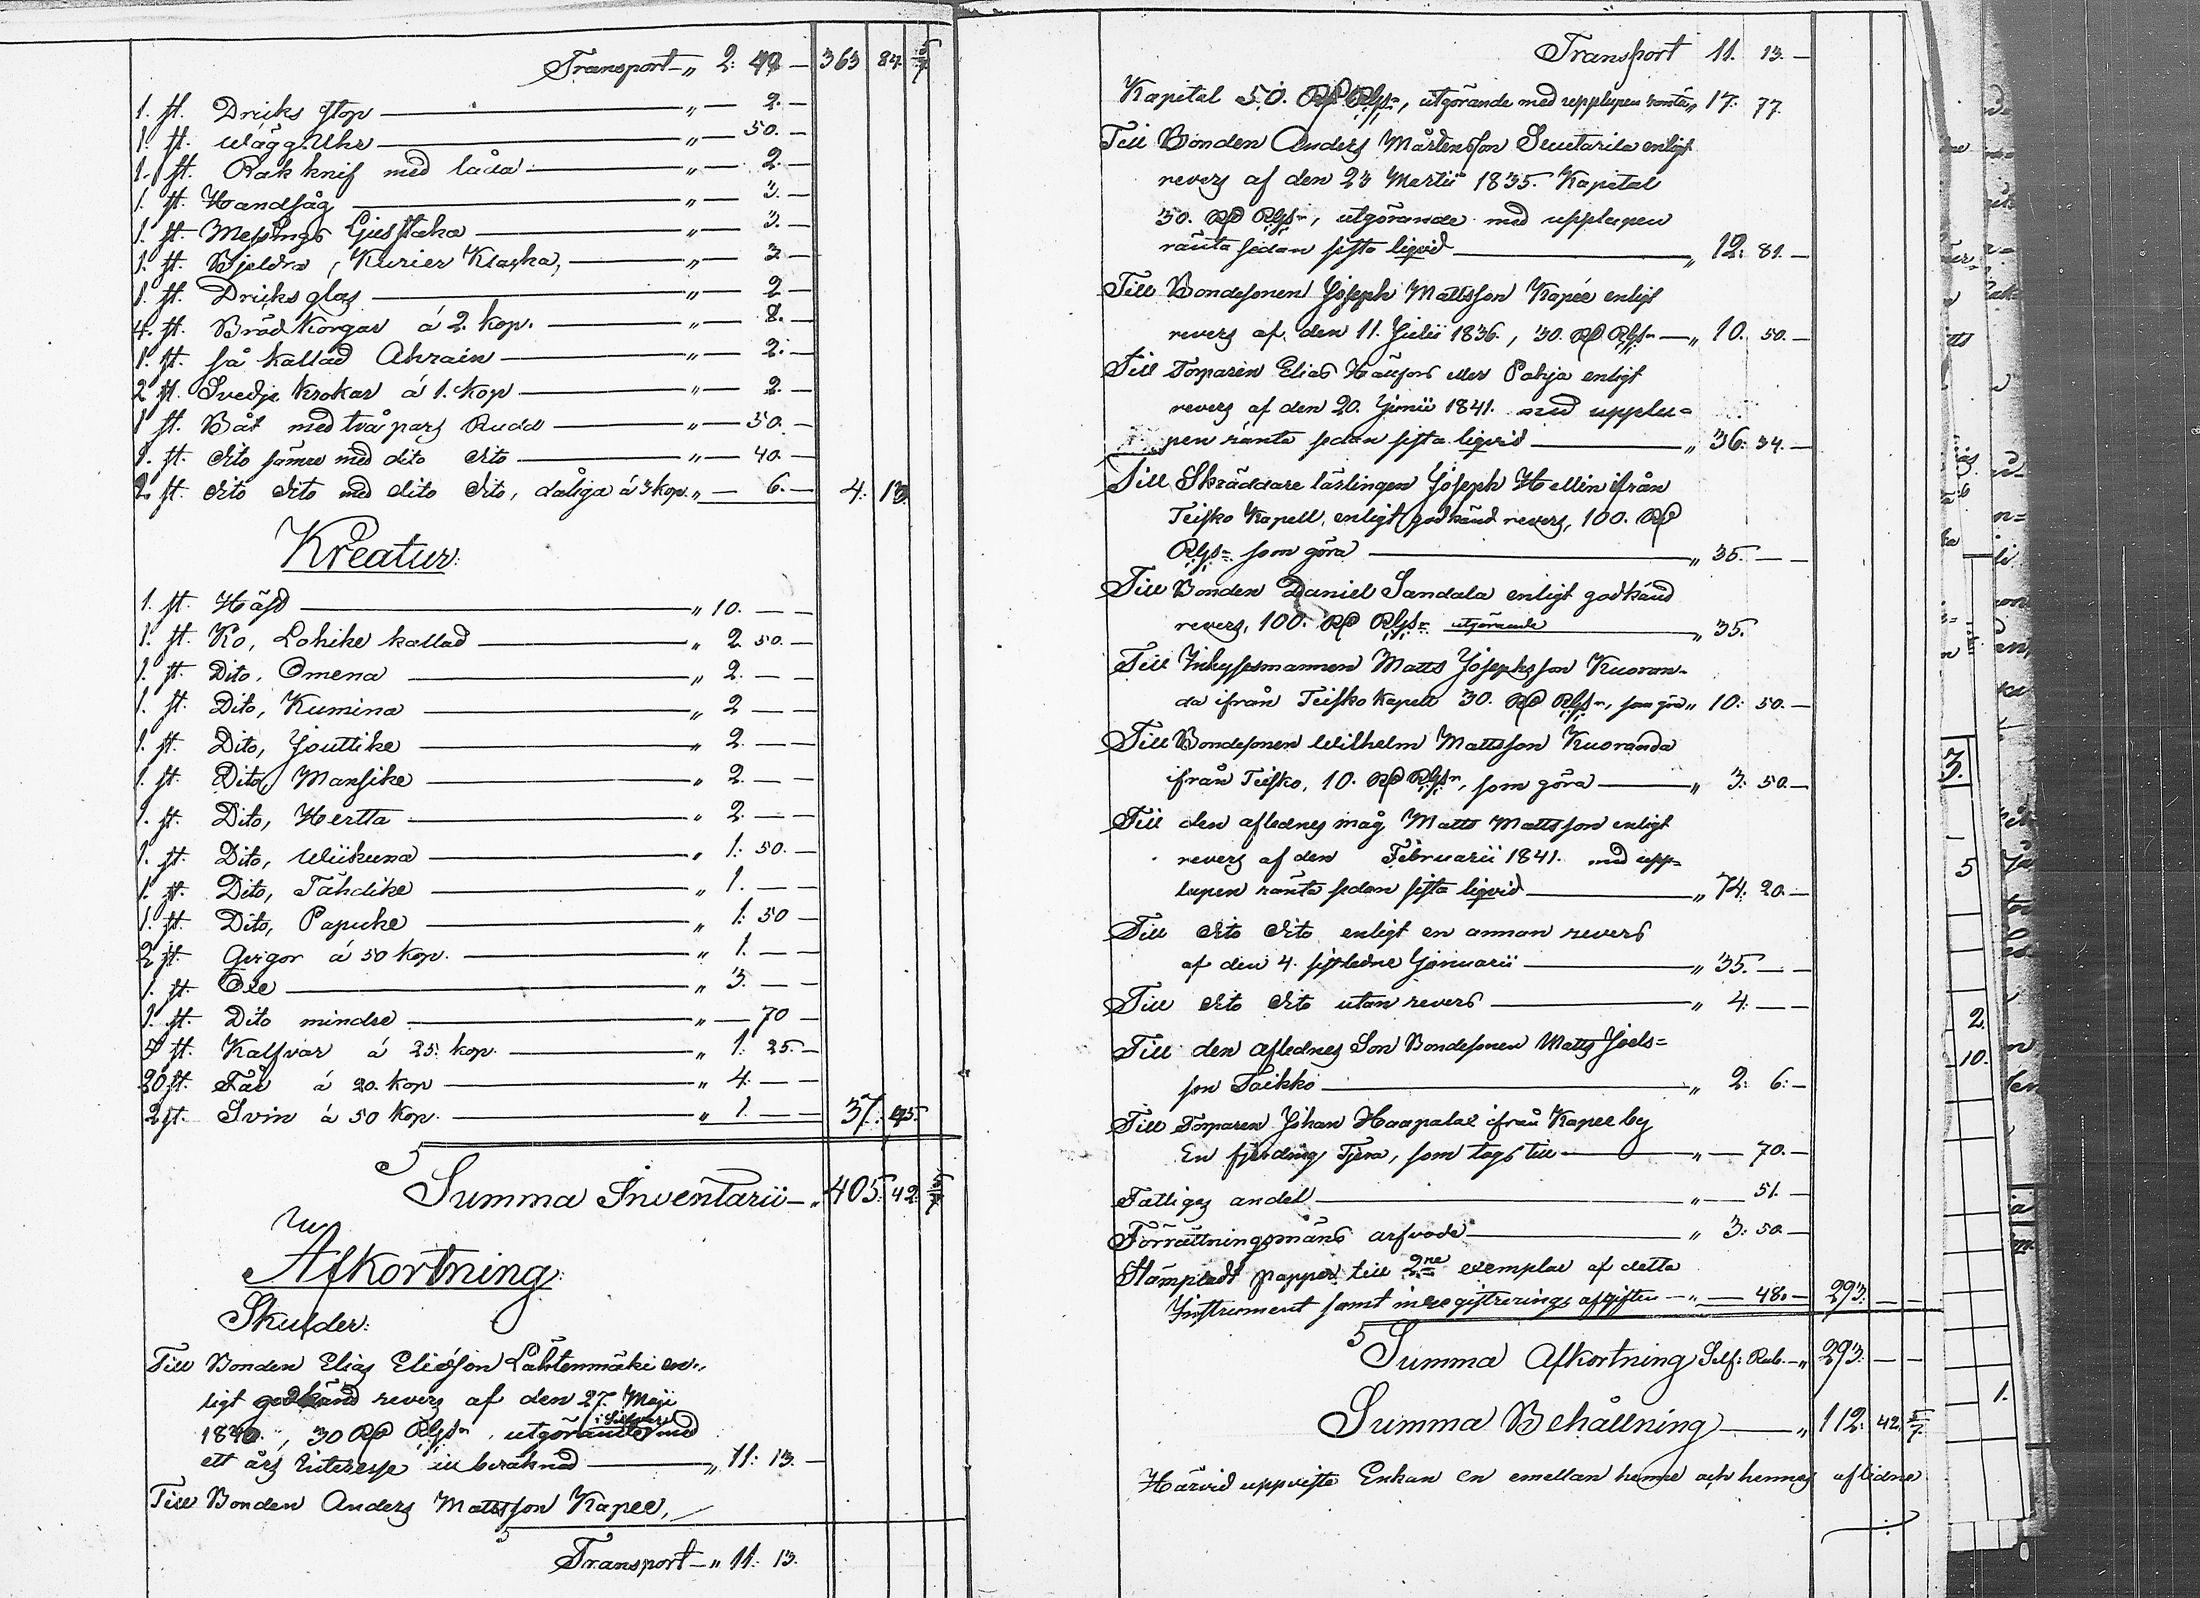 Transport " 2: 49 — 363 84. 5/7
1. st. Dricks stop " — 2. —
1. st. Wägg Uhr " — 50. —
1. st. Rak knif med låda " — 2. —
1. st. Handsåg " — 3. —
1. st. Messings Ljusstaka " — 3. —
1. st. Bjeldra, Kurier Klåcka, " — 3.
1. st. Dricks glas " — 2
4. st. Bräd Korgar á 2. kop. " — 8. —
1. st. så kallad Ahrain " — 2. —
2 st. Svedje Krokar á 1. kop " — 2. —
1 st. Båt med två pars Rudd " — 50. —
1. st. dito sämre med dito dito " — 40. —
2 st. dito dito med dito dito, dåliga á 3 kop. " — 6. — 4. 13.
Kreatur:
1. st. Häst " 10. — —
1. st. Ko, Lohike kallad " 2. 50. —
1. st. Dito, Omena " 2. — —
1. st. Dito, Kumina " 2 — —
1. st. Dito, Jouttike " 2. — —
1. st. Dito, Mansike " 2. — —
1. st. Dito, Hertta " 2. — —
1. st. Dito, Wiikuna " 1: 50. —
1. st. Dito, Tähdike " 1. — —
1. st. Dito, Papuke " 1: 50 —
2 st. Qvigor á 50 kop. " 1. — —
1. st. Oxe " 3. — —
1. st. Dito mindre " — 70 —
5 st. Kalfvar á 25. kop. " 1: 25. —
20 st. Får á 20. kop " 4. — —
2 st. Svin á 50 kop. " 1. — — 37. 45.
Summa Inventarii — " 405. 42. 5/7
Afkortning:
Skulder:
Till Bonden Elias Eliasson Lähtenmäki en„
ligt godkänd revers af den 27. Maji
1840., 30 RD Rgs=, utgörande i Silfver med
ett års Interesse inberäknad " 11: 13. —
Till Bonden Anders Mattsson Kapee,
Transport — " 11: 13.
Transport 11. 13. —
Kapital 50. RD Rgs=, utgörande med upplupen ränta " 17: 77.
Till Bonden Anders Mårtensson Suutarila enligt
revers af den 23 Martii 1835. Kapital
30. RD Rgs=, utgörande med upplupen
ränta sedan sista liqvid " 12: 81. —
Till Bondesonen Joseph Mattsson Kapee enligt
revers af den 11. Julii 1836, 30. RD Rgs= " 10. 50. —
Till Torparen Elias Häufors eller Pohja enligt
revers af den 20. Junii 1841. med upplu=
pen ränta sedan sista liqvid " 36: 34. —
Till Skräddare lärlingen Joseph Hellin ifrån
Teisko Kapell, enligt godkänd revers, 100. RD
Rgs= som göra " 35. — —
Till Bonden Daniel Sandala enligt godkänd
revers, 100. RD Rgs= utgörande " 35.
Till Inhysesmannen Matts Josephsson Kuoran-
da ifrån Teisko Kapell 30. RD Rgs=, som göra " 10: 50. —
Till Bondesonen Wilhelm Mattsson Kuoranda
ifrån Teisko, 10. RD Rgs=, som göra " 3: 50. —
Till den aflednes måg Matts Mattsson enligt
revers af den Februarii 1841. med upp=
lupen ränta sedan sista liqvid " 74: 20. —
Till dito dito enligt en annan revers
af den 4. sistledne Januarii " 35. — —
Till dito dito utan revers " 4. — —
Till den aflednes Son Bondesonen Matts Joels=
son Paikko " 2: 6: —
Till Torparen Johan Haapalai ifrån Kapee by
En fjerding Tjära, som tags till " — 70. —
Fattiges andel " — 51. —
Förrättningsmäns arfvode " 3: 50. —
Stämpladt papper till 2ne exemplar af detta
Instrument samt inregistrerings afgiften — " — 48. — 293. — —
Summa Afkortning Silf: Rub. — " 293. — —
Summa Behållning " 112. 42. 5/7.
Härvid uppviste Enkan en emellan henne och hennes aflidne